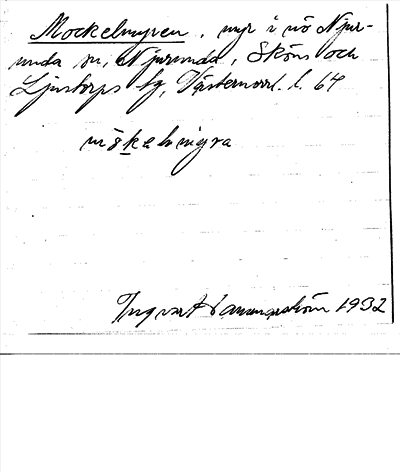 Mockelmyren, myr i nö Njur-
unda sn, Njurunda, Sköns och
Ljustorps tg, Västernorrl. l. 64
måkelmyra
Ingvar Hammarström 1932